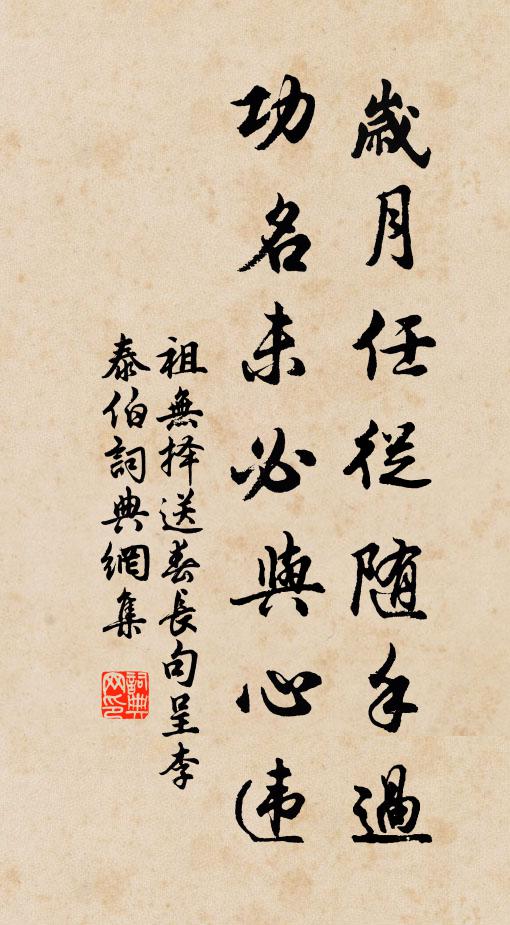 歲月任從随手過
功名未必與心违
祖無择送春長句呈李
泰伯詞典網集
詞典
网印